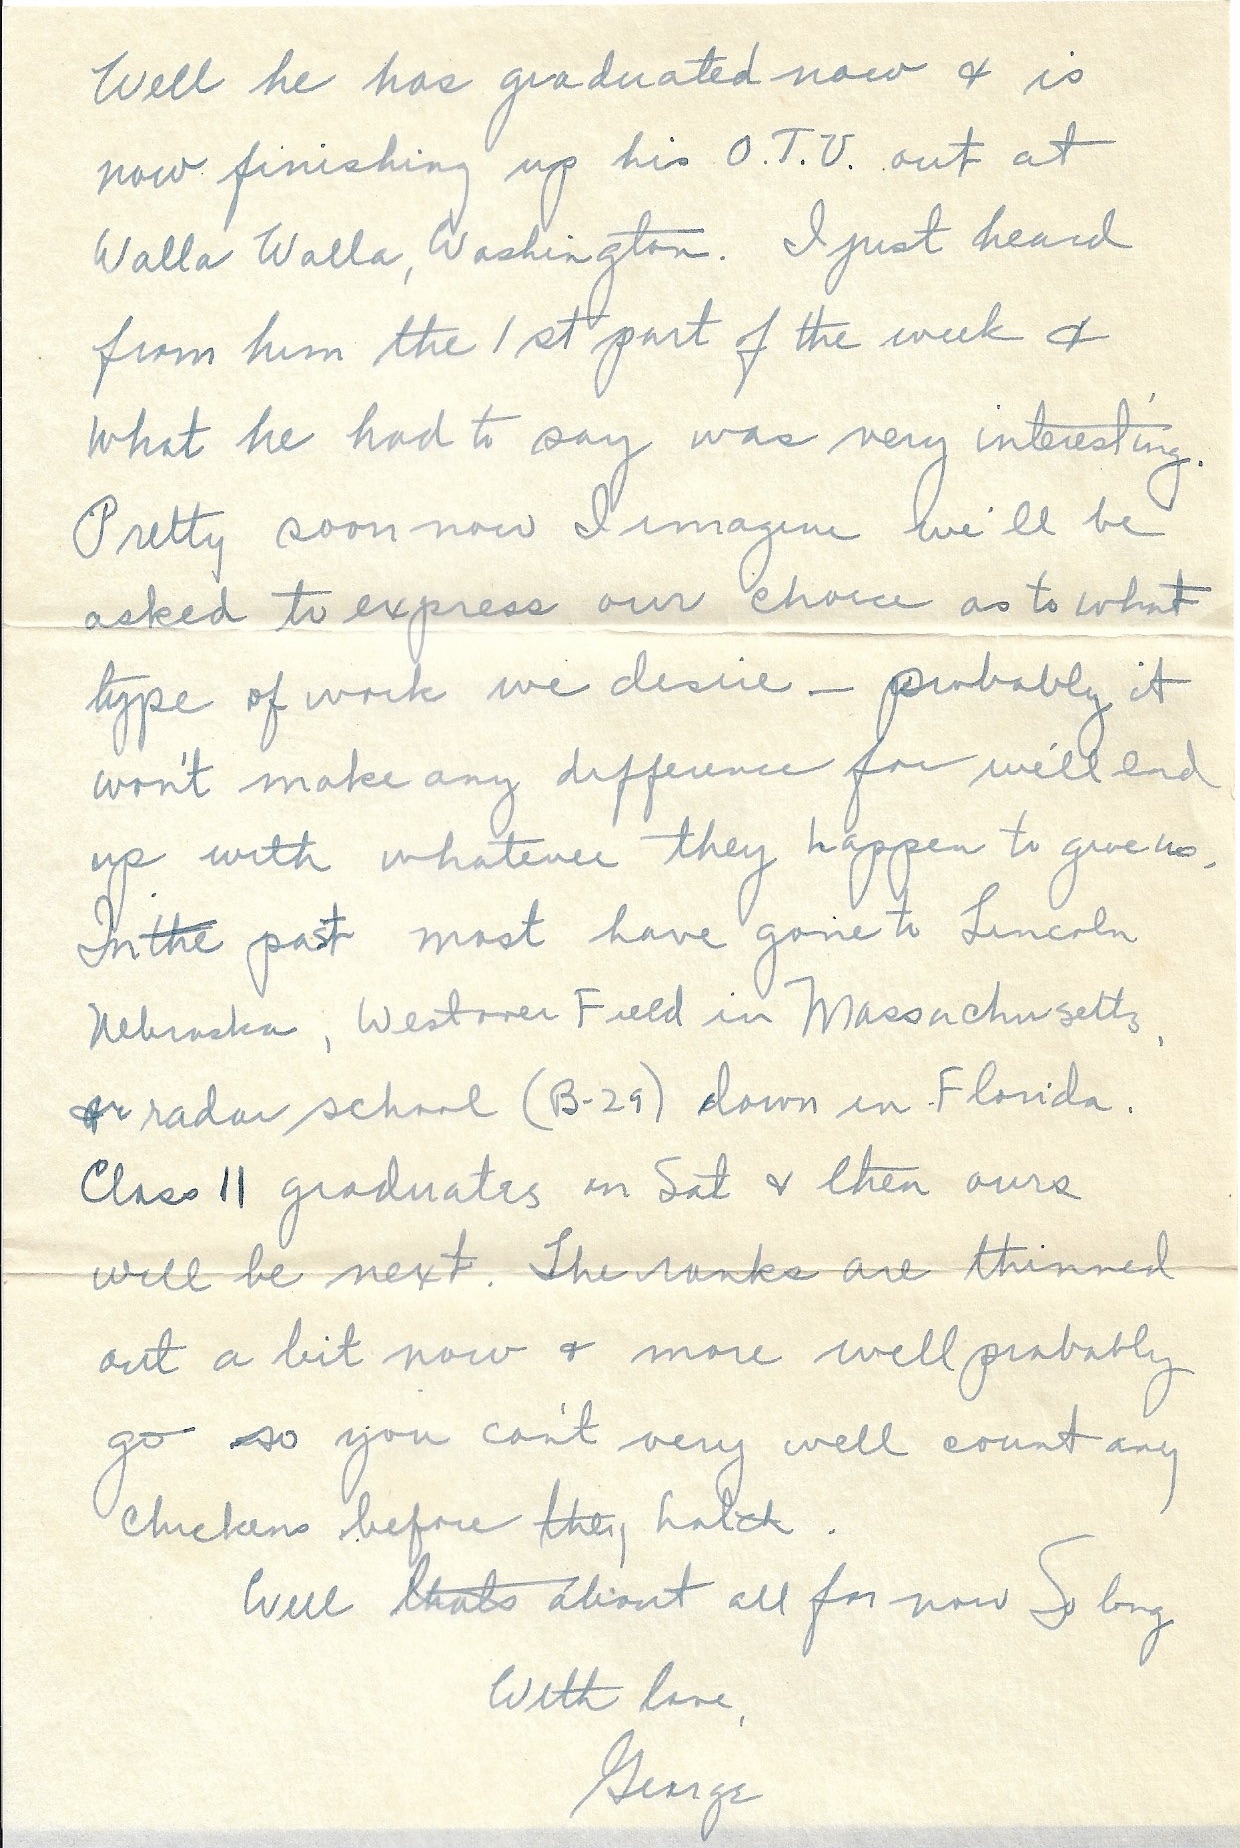 Well he has graduated now & is
now finishing up his O.T.U. out at
Walla Walla, Washington. I just heard
from him the 1st part of the week &
what he had to say was very interesting.
Pretty soon now I imagine we'll be
asked to express our choice as to what
type of work we desire - probably it
won't make any difference for we'll end
up with whatever they happen to give us.
In the past most have gone to Lincoln
Nebraska, Westover Field in Massachusetts,
or radar school (B-29) down in Florida.
Class 11 graduates on Sat & then ours
will be next. The ranks are thinned
out a bit now & more will probably
go so you can't very well count any
chickens before they hatch.
Well thats about all for now So long
With love,
George